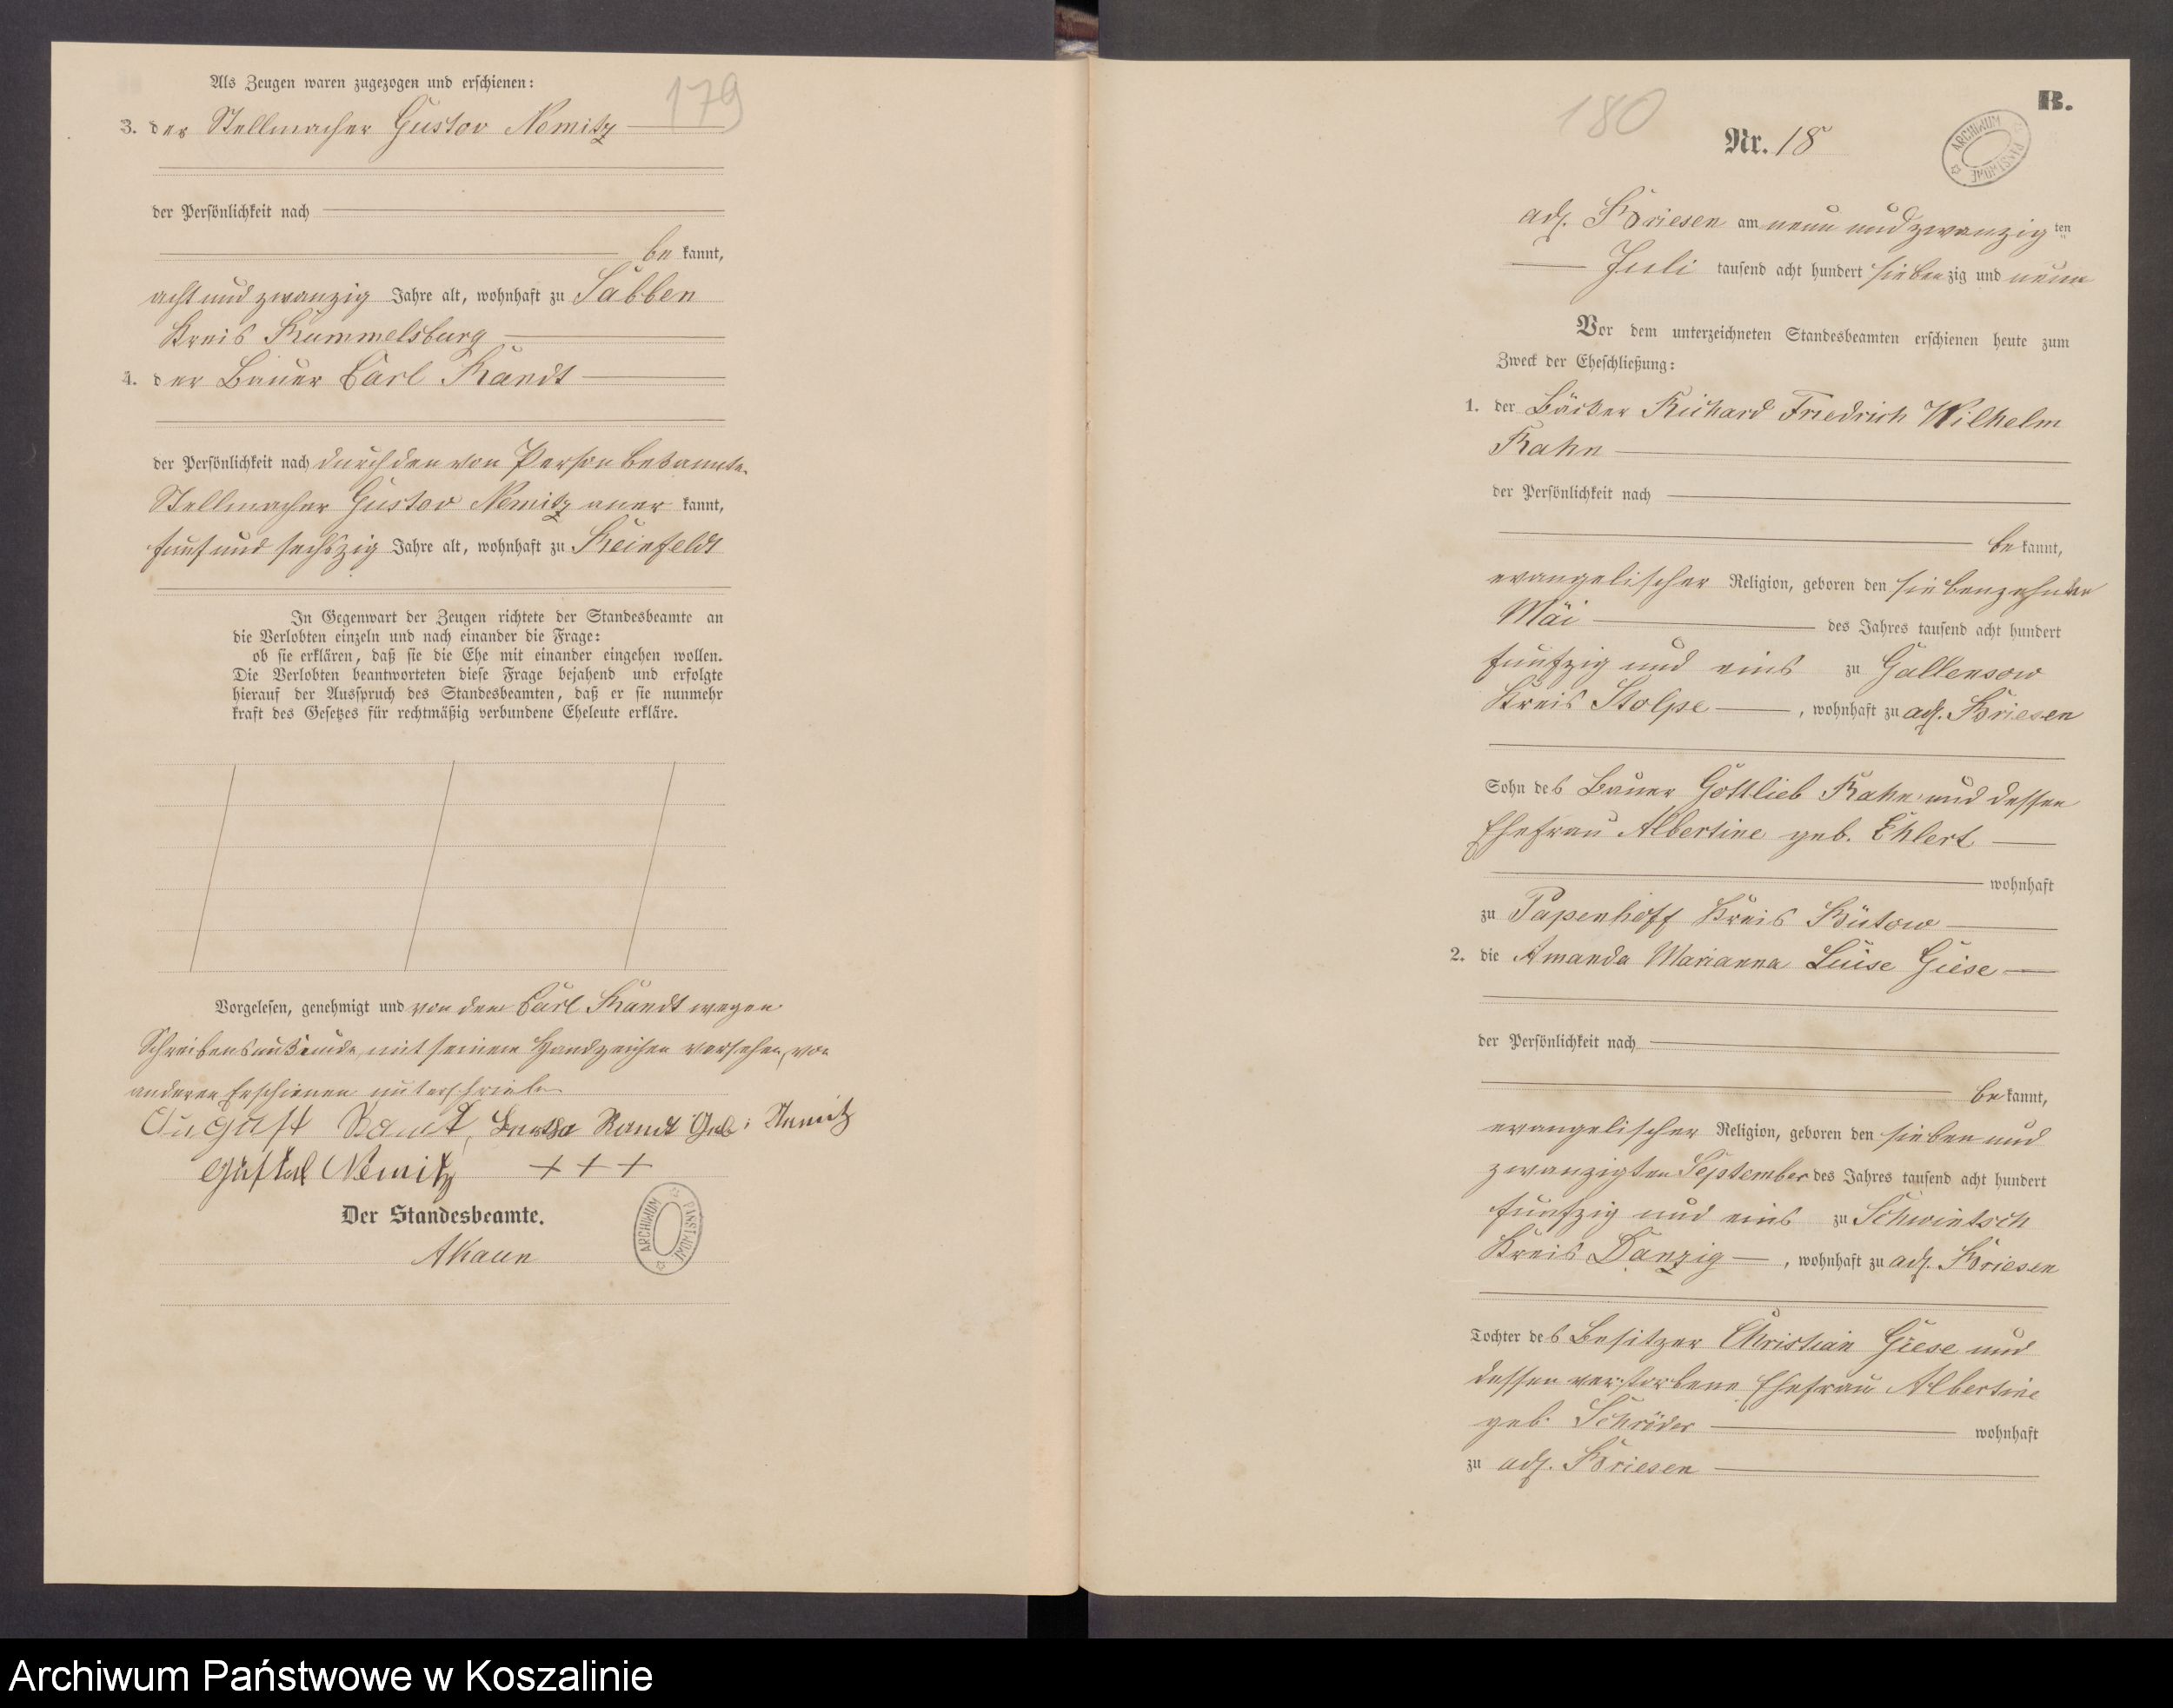 Als Zeugen waren zugezogen und erschienen:
179
3. der Stellmacher Gustav Nemitz
der Persönlichkeit nach
be kannt,
acht und zwanzig Jahre alt, wohnhaft zu Sabben
Kreis Rummelsburg
4. der Bauer Carl Randt
der Persönlichkeit nach durch den von Person bekannten
Stellmacher Gustav Nemitz aner kannt,
fünf und sechszig Jahre alt, wohnhaft zu Reinfeldt
In Gegenwart der Zeugen richtete der Standesbeamte an
die Verlobten einzeln und nach einander die Frage:
ob sie erklären, daß sie die Ehe mit einander eingehen wollen.
Die Verlobten beantworteten diese Frage bejahend und erfolgte
hierauf der Ausspruch des Standesbeamten, daß er sie nunmehr
kraft des Gesetzes für rechtmäßig verbundene Eheleute erkläre.
Vorgelesen, genehmigt und von dem Carl Randt wegen
Schreibensunkunde mit seinem Handzeichen versehen, von
anderen Erschienen unterschrieben
August Randt, Randt Geb: Nemitz
Gustav Nemitz +++
Der Standesbeamte.
ARCHIWUM PAŃSTWOWE
B.
180
Nr. 18
ARCHIWUM PAŃSTWOWE
adl. Briesen am neun und zwanzig ten
Juli tausend acht hundert sieben zig und neun
Vor dem unterzeichneten Standesbeamten erschienen heute zum
Zweck der Eheschließung:
1. der Bäcker Richard Friedrich Wilhelm
Rahn
der Persönlichkeit nach
be kannt,
evangelischer Religion, geboren den siebenzehnten
Mai des Jahres tausend acht hundert
fünfzig und eins zu Gallensow
Kreis Stolpe, wohnhaft zu adl. Briesen
Sohn des Bauer Gottlieb Rahn und dessen
Ehefrau Albertine geb. Ehlert
wohnhaft
zu Papenhoff Kreis Bütow
2. die Amanda Marianna Luise Giese
der Persönlichkeit nach
be kannt,
evangelischer Religion, geboren den sieben und
zwanzigten September des Jahres tausend acht hundert
fünfzig und eins zu Schwintsch
Kreis Danzig, wohnhaft zu adl. Briesen
Tochter des Besitzer Christian Giese und
dessen verstorbene Ehefrau Albertine
geb. Schröder wohnhaft
zu adl. Briesen
Archiwum Państwowe w Koszalinie